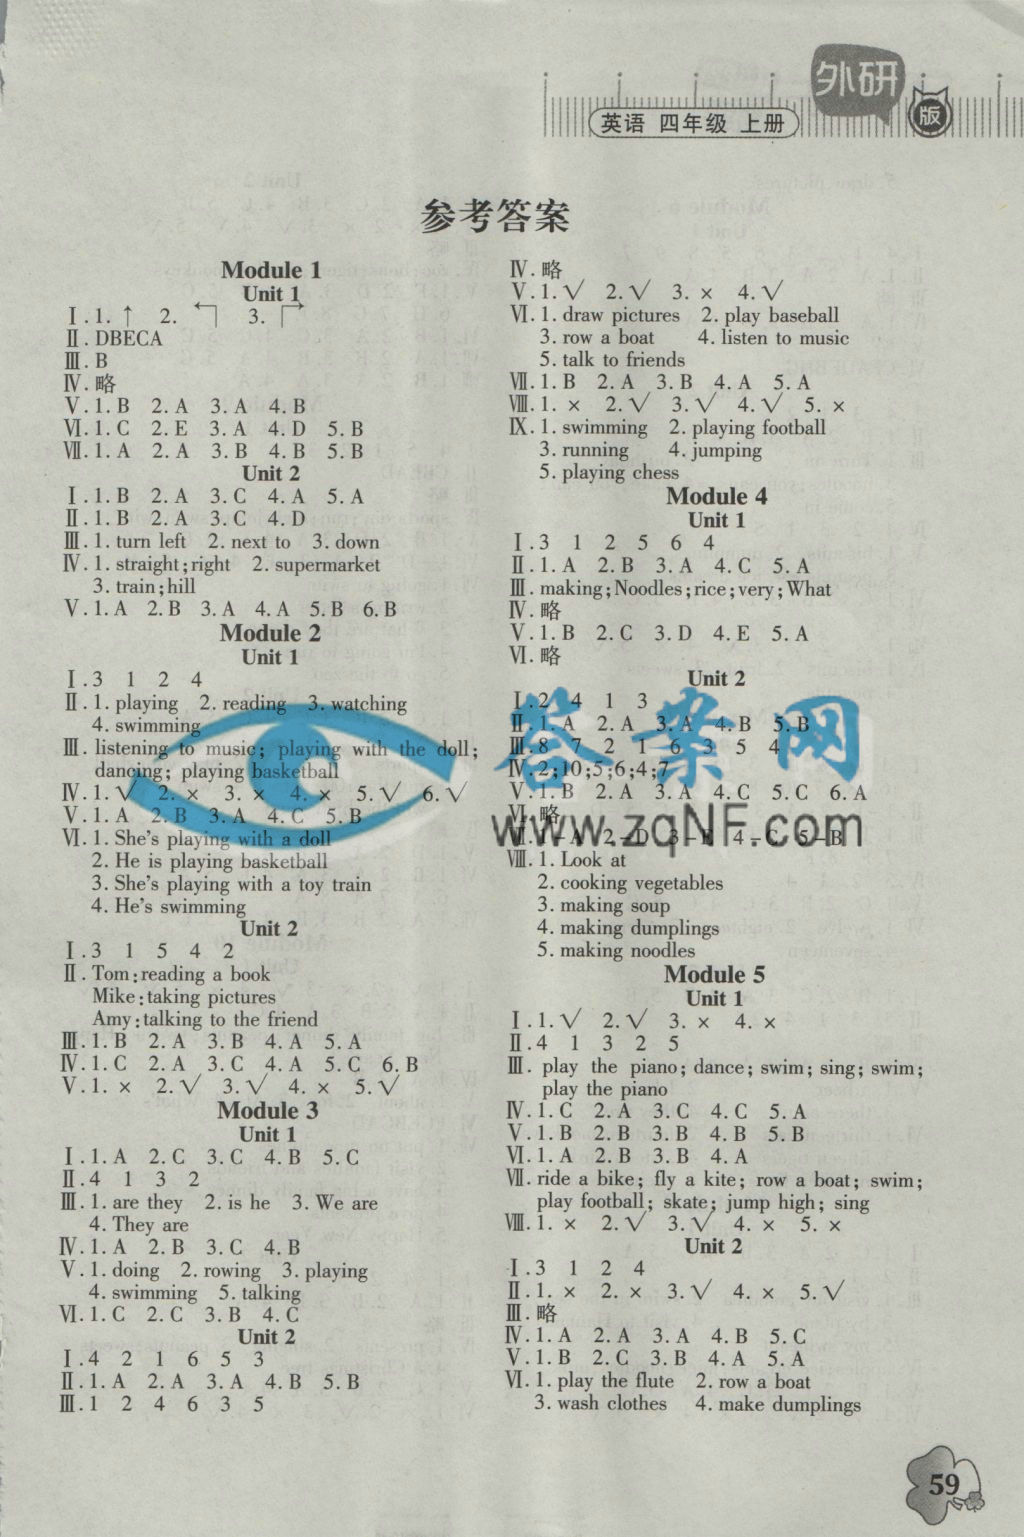 外研
版
英语 四年级 上册
参考答案
Module 1
Unit 1
Ⅰ.1.↑ 2.↰ 3.↱
Ⅱ.DBECA
Ⅲ.B
Ⅳ.略
Ⅴ.1.B 2.A 3.A 4.B
Ⅵ.1.C 2.E 3.A 4.D 5.B
Ⅶ.1.A 2.A 3.B 4.B 5.B
Unit 2
Ⅰ.1.B 2.A 3.C 4.A 5.A
Ⅱ.1.B 2.A 3.C 4.D
Ⅲ.1. turn left 2. next to 3. down
Ⅳ.1. straight;right 2. supermarket
3. train;hill
Ⅴ.1.A 2.B 3.A 4.A 5.B 6.B
Module 2
Unit 1
Ⅰ.3 1 2 4
Ⅱ.1. playing 2. reading 3. watching
4. swimming
Ⅲ. listening to music; playing with the doll;
dancing; playing basketball
Ⅳ.1.√ 2.× 3.× 4.× 5.√ 6.√
Ⅴ.1.A 2.B 3.A 4.C 5.B
Ⅵ.1. She's playing with a doll
2. He is playing basketball
3. She's playing with a toy train
4. He's swimming
Unit 2
Ⅰ.3 1 5 4 2
Ⅱ.Tom:reading a book
Mike:taking pictures
Amy:talking to the friend
Ⅲ.1.B 2.A 3.B 4.A 5.A
Ⅳ.1.C 2.A 3.C 4.A 5.C 6.B
Ⅴ.1.× 2.√ 3.√ 4.× 5.√
Module 3
Unit 1
Ⅰ.1.A 2.C 3.C 4.B 5.C
Ⅱ.4 1 3 2
Ⅲ.1. are they 2. is he 3. We are
4. They are
Ⅳ.1.A 2.B 3.C 4.B
Ⅴ.1. doing 2. rowing 3. playing
4. swimming 5. talking
Ⅵ.1.C 2.C 3.B 4.C
Unit 2
Ⅰ.4 2 1 6 5 3
Ⅱ.1.A 2.A 3.A 4.B 5.B
Ⅲ.1 2 4 6 3 5
Ⅳ.略
Ⅴ.1.√ 2.√ 3.× 4.√
Ⅵ.1. draw pictures 2. play baseball
3. row a boat 4. listen to music
5. talk to friends
Ⅶ.1.B 2.A 3.B 4.A 5.A
Ⅷ.1.× 2.√ 3.√ 4.√ 5.×
Ⅸ.1. swimming 2. playing football
3. running 4. jumping
5. playing chess
Module 4
Unit 1
Ⅰ.3 1 2 5 6 4
Ⅱ.1.A 2.B 3.A 4.C 5.A
Ⅲ. making;Noodles;rice;very;What
Ⅳ.略
Ⅴ.1.B 2.C 3.D 4.E 5.A
Ⅵ.略
Unit 2
Ⅰ.2 4 1 3
Ⅱ.1.A 2.A 3.A 4.B 5.B
Ⅲ.8 7 2 1 6 3 5 4
Ⅳ.2;10;5;6;4;7
Ⅴ.1.B 2.A 3.A 4.C 5.C 6.A
Ⅵ.略
Ⅶ.1-A 2-D 3-E 4-C 5-B
Ⅷ.1. Look at
2. cooking vegetables
3. making soup
4. making dumplings
5. making noodles
Module 5
Unit 1
Ⅰ.1.√ 2.√ 3.× 4.×
Ⅱ.4 1 3 2 5
Ⅲ. play the piano; dance; swim; sing; swim;
play the piano
Ⅳ.1.C 2.A 3.C 4.C 5.A
Ⅴ.1.B 2.B 3.B 4.B 5.B
Ⅵ.1.A 2.B 3.B 4.A
Ⅶ. ride a bike; fly a kite; row a boat; swim;
play football; skate; jump high; sing
Ⅷ.1.× 2.√ 3.√ 4.× 5.×
Unit 2
Ⅰ.3 1 2 4
Ⅱ.1.× 2.× 3.√ 4.× 5.√
Ⅲ.略
Ⅳ.1.A 2.A 3.A 4.B 5.C
Ⅴ.1.B 2.C 3.B 4.A 5.A
Ⅵ.1. play the flute 2. row a boat
3. wash clothes 4. make dumplings
答案网
www.zqNF.com
59